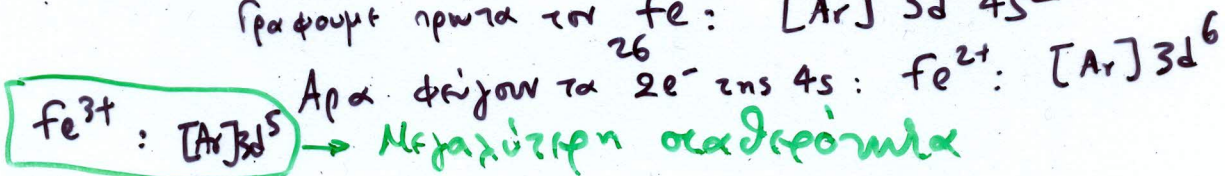 Γράφουμε πρώτα τον Fe: [Ar] 3d 4s
26
Άρα φεύγουν τα 2e⁻ της 4s: Fe²⁺: [Ar] 3d⁶
Fe³⁺ : [Ar]3d⁵ → Μεγαλύτερη σταθερότητα